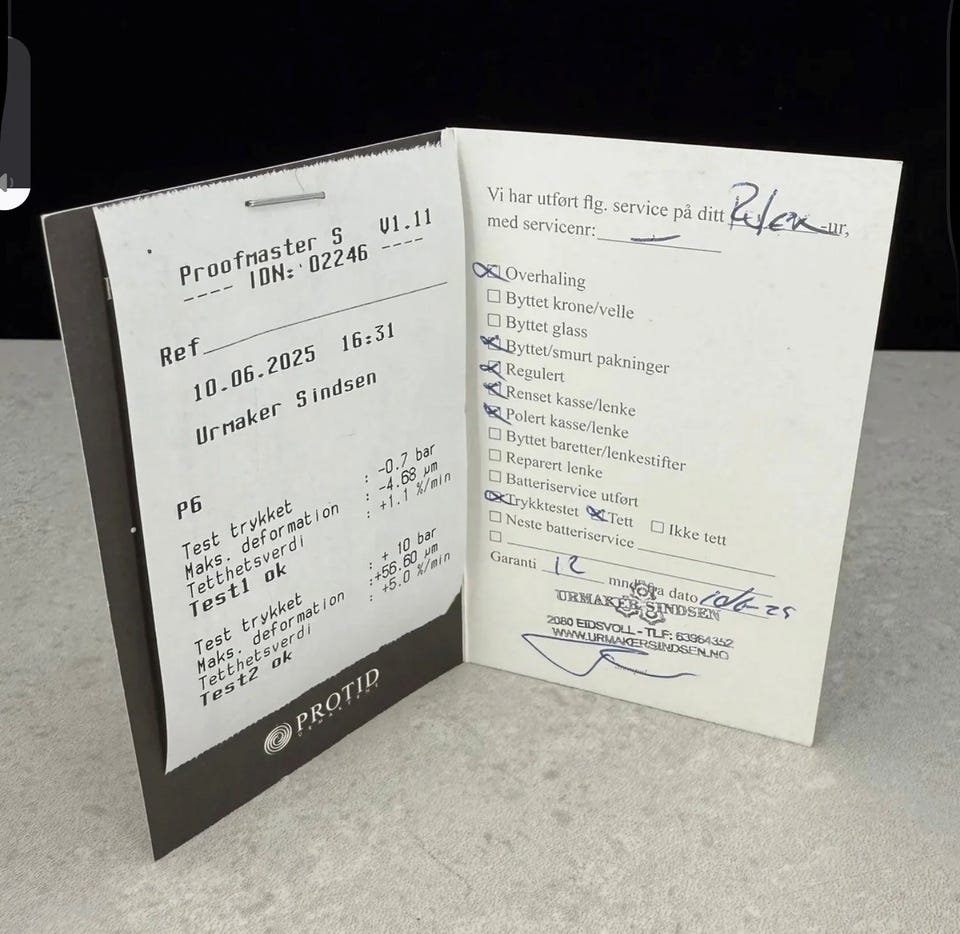 Proofmaster S V1.11
---- IDN: 02246 ----
Ref
10.06.2025 16:31
Urmaker Sindsen
P6
Test trykket : -0.7 bar
Maks. deformation : -4.68 µm
Tetthetsverdi : +1.1 %/min
Test1 ok
Test trykket : + 10 bar
Maks. deformation :+56.60 µm
Tetthetsverdi : +5.0 %/min
Test2 ok
PROTID
Vi har utført flg. service på ditt Rolex-ur,
med servicenr: —
Overhaling
Byttet krone/velle
Byttet glass
Byttet/smurt pakninger
Regulert
Renset kasse/lenke
Polert kasse/lenke
Byttet baretter/lenkestifter
Reparert lenke
Batteriservice utført
Trykktestet Tett Ikke tett
Neste batteriservice
Garanti 12 mnd fra dato 10/6-25
URMAKER SINDSEN
2080 EIDSVOLL - TLF: 63964352
WWW.URMAKERSINDSEN.NO